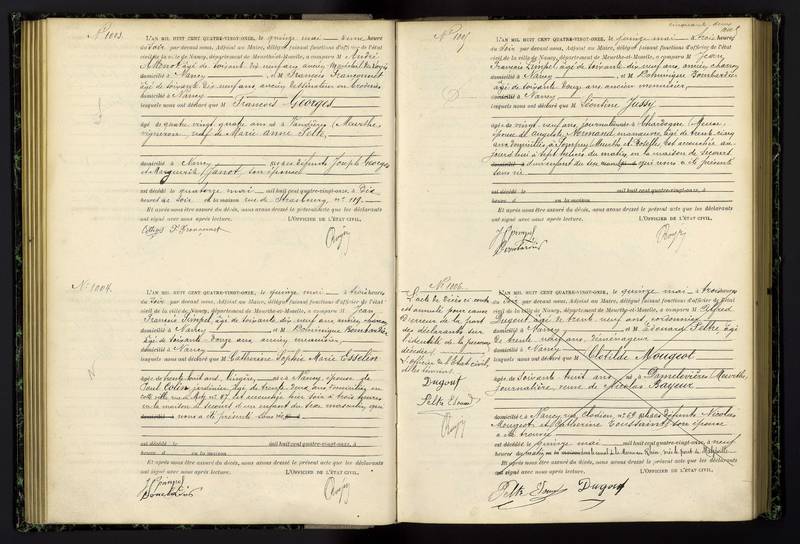 N° 1003.
L'AN MIL HUIT CENT QUATRE-VINGT-ONZE, le quinze mai — à une heure
du soir par devant nous, Adjoint au Maire, délégué faisant fonctions d'officier de l'état
civil de la ville de Nancy, département de Meurthe-et-Moselle, a comparu M André
âgé de soixante dix neuf ans, ancien
domicilié à Nancy — et M François Françonnet
âgé de soixante dix neuf ans ancien dessinateur en broderies
domicilié à Nancy —
lesquels nous ont déclaré que M François Georges
âgé de quatre vingt quatre ans né à Vandières (Meurthe,
vigneron, veuf de Marie Anne Pette,
domicilié à Nancy — né des défunts Joseph Georges
et Marguerite Janot, son épouse
est décédé le quatorze mai — mil huit cent quatre-vingt-onze, à dix
heures du soir en la maison rue de Strasbourg, n° 119. —
Et après nous être assuré du décès, nous avons dressé le présent acte que les déclarants
ont signé avec nous après lecture. L'OFFICIER DE L'ÉTAT CIVIL,
N° 1004.
L'AN MIL HUIT CENT QUATRE-VINGT-ONZE, le quinze mai — à trois heures
du soir par devant nous, Adjoint au Maire, délégué faisant fonctions d'officier de l'état
civil de la ville de Nancy, département de Meurthe-et-Moselle, a comparu M Jean
François Zimpel, âgé de soixante dix neuf ans, ancien
domicilié à Nancy — et M Dominique Bombardier
âgé de soixante douze ans, ancien menuisier,
domicilié à Nancy —
lesquels nous ont déclaré que M Catherine Sophie Marie Esselin
âgée de trente huit ans, lingère, — née à Nancy, épouse de
Paul Colin, jardinier, âgé de trente deux ans, domiciliés en
cette ville, rue de Metz, n° 87, est accouchée hier soir à trois heures
en la maison de secours d'un enfant du sexe masculin, qui
nous a été présenté sans vie.
est décédé le — mil huit cent quatre-vingt-onze, à
heure d en la maison
Et après nous être assuré du décès, nous avons dressé le présent acte que les déclarants
ont signé avec nous après lecture. L'OFFICIER DE L'ÉTAT CIVIL,
cinquante deux
N° 1005
L'AN MIL HUIT CENT QUATRE-VINGT-ONZE, le quinze mai — à trois heures
du soir par devant nous, Adjoint au Maire, délégué faisant fonctions d'officier de l'état
civil de la ville de Nancy, département de Meurthe-et-Moselle, a comparu M Jean
François Zimpel, âgé de soixante dix neuf ans, ancien
domicilié à Nancy — et M Dominique Bombardier
âgé de soixante douze ans ancien menuisier,
domicilié à Nancy —
lesquels nous ont déclaré que M Léontine Jussy
âgée de vingt neuf ans, journalière née à Chardogne (Meuse,
épouse de Auguste Normand, manœuvre, âgé de trente cinq
ans, domiciliés à Jeurpey Meurthe et Moselle, est accouchée au-
jourd'hui à sept heures du matin en la maison de secours
d'un enfant du sexe qui nous a été présenté
sans vie.
est décédé le — mil huit cent quatre-vingt-onze, à
heure d en la maison
Et après nous être assuré du décès, nous avons dressé le présent acte que les déclarants
ont signé avec nous après lecture. L'OFFICIER DE L'ÉTAT CIVIL,
N° 1006.
L'acte de décès ci contre
est annulé pour cause
d'erreur de la part
des déclarants sur
l'identité de la personne
décédée.
L'officier de l'état civil,
Dugout
Peltre Edouard
L'AN MIL HUIT CENT QUATRE-VINGT-ONZE, le quinze mai — à trois heures
du soir par devant nous, Adjoint au Maire, délégué faisant fonctions d'officier de l'état
civil de la ville de Nancy, département de Meurthe-et-Moselle, a comparu M Alfred
Dugout, âgé de trente neuf ans, poissonnier
domicilié à Nancy — et M Edouard Peltre âgé
de trente neuf ans, déménageur
domicilié à Nancy —
lesquels nous ont déclaré que M Clotilde Mougeot
âgée de soixante huit ans — née à Damelevières Meurthe,
journalière, veuve de Nicolas Bageux
domiciliée à Nancy, rue Clodion, n° 69 née des défunts Nicolas
Mougeot et Catherine Toustaint, son épouse
a été trouvée
le quinze mai — mil huit cent quatre-vingt-onze, à neuf
heures du matin dans le canal de la Marne au Rhin, près le pont de Malzéville
Et après nous être assuré du décès, nous avons dressé le présent acte que les déclarants
ont signé avec nous après lecture. L'OFFICIER DE L'ÉTAT CIVIL,
Peltre Edouard Dugout